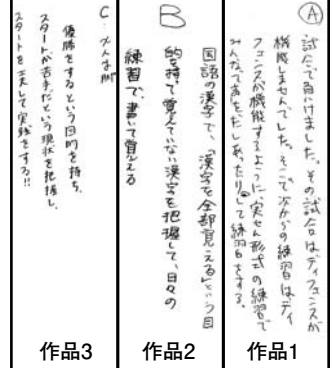 Ⓐ
試合で負けました。その試合はディフェンスが
機能しませんでした。そこで次からの練習はディ
フェンスが機能するように、実せん形式の練習で
みんなで声をだしあったりして練習をする。
作品1
B
国語の漢字で、「漢字を全部覚える」という目
的を持って覚えていない漢字を把握して、日々の
練習で、書いて覚える
作品2
C:
優勝をするという目的を持ち、
スタートが苦手だという現状を把握し、
スタートを工夫して実践をする!!
作品3